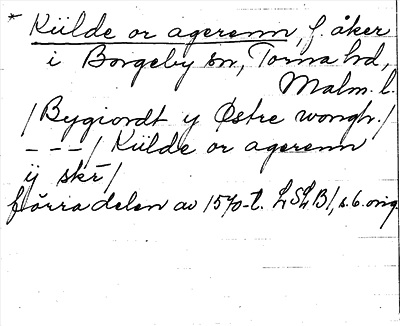 * Külde or agerenn, f. åker
i Borgeby sn, Torna hd,
Malm. l.
/Bygiordt y Østre wongh./
- - -/ Külde or agerenn
ÿ skr̄/
förra delen av 1570-t. LSLB1, s. 6. orig.